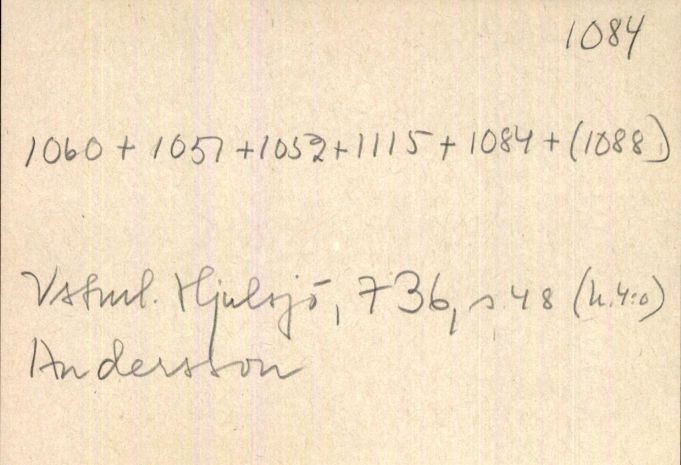 1084
1060 + 1051 + 1052 + 1115 + 1084 + (1088)
Vstml. Hjulsjö, 736, s 48 (h. 4:o)
Andersson